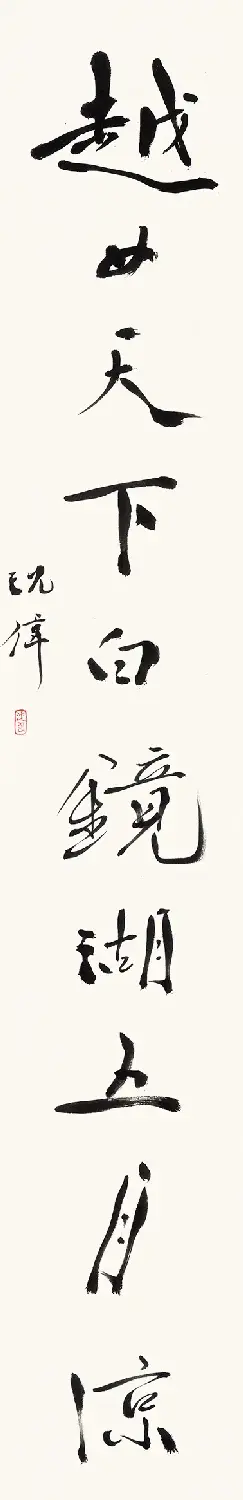 越女天下白鏡湖五月涼
偉